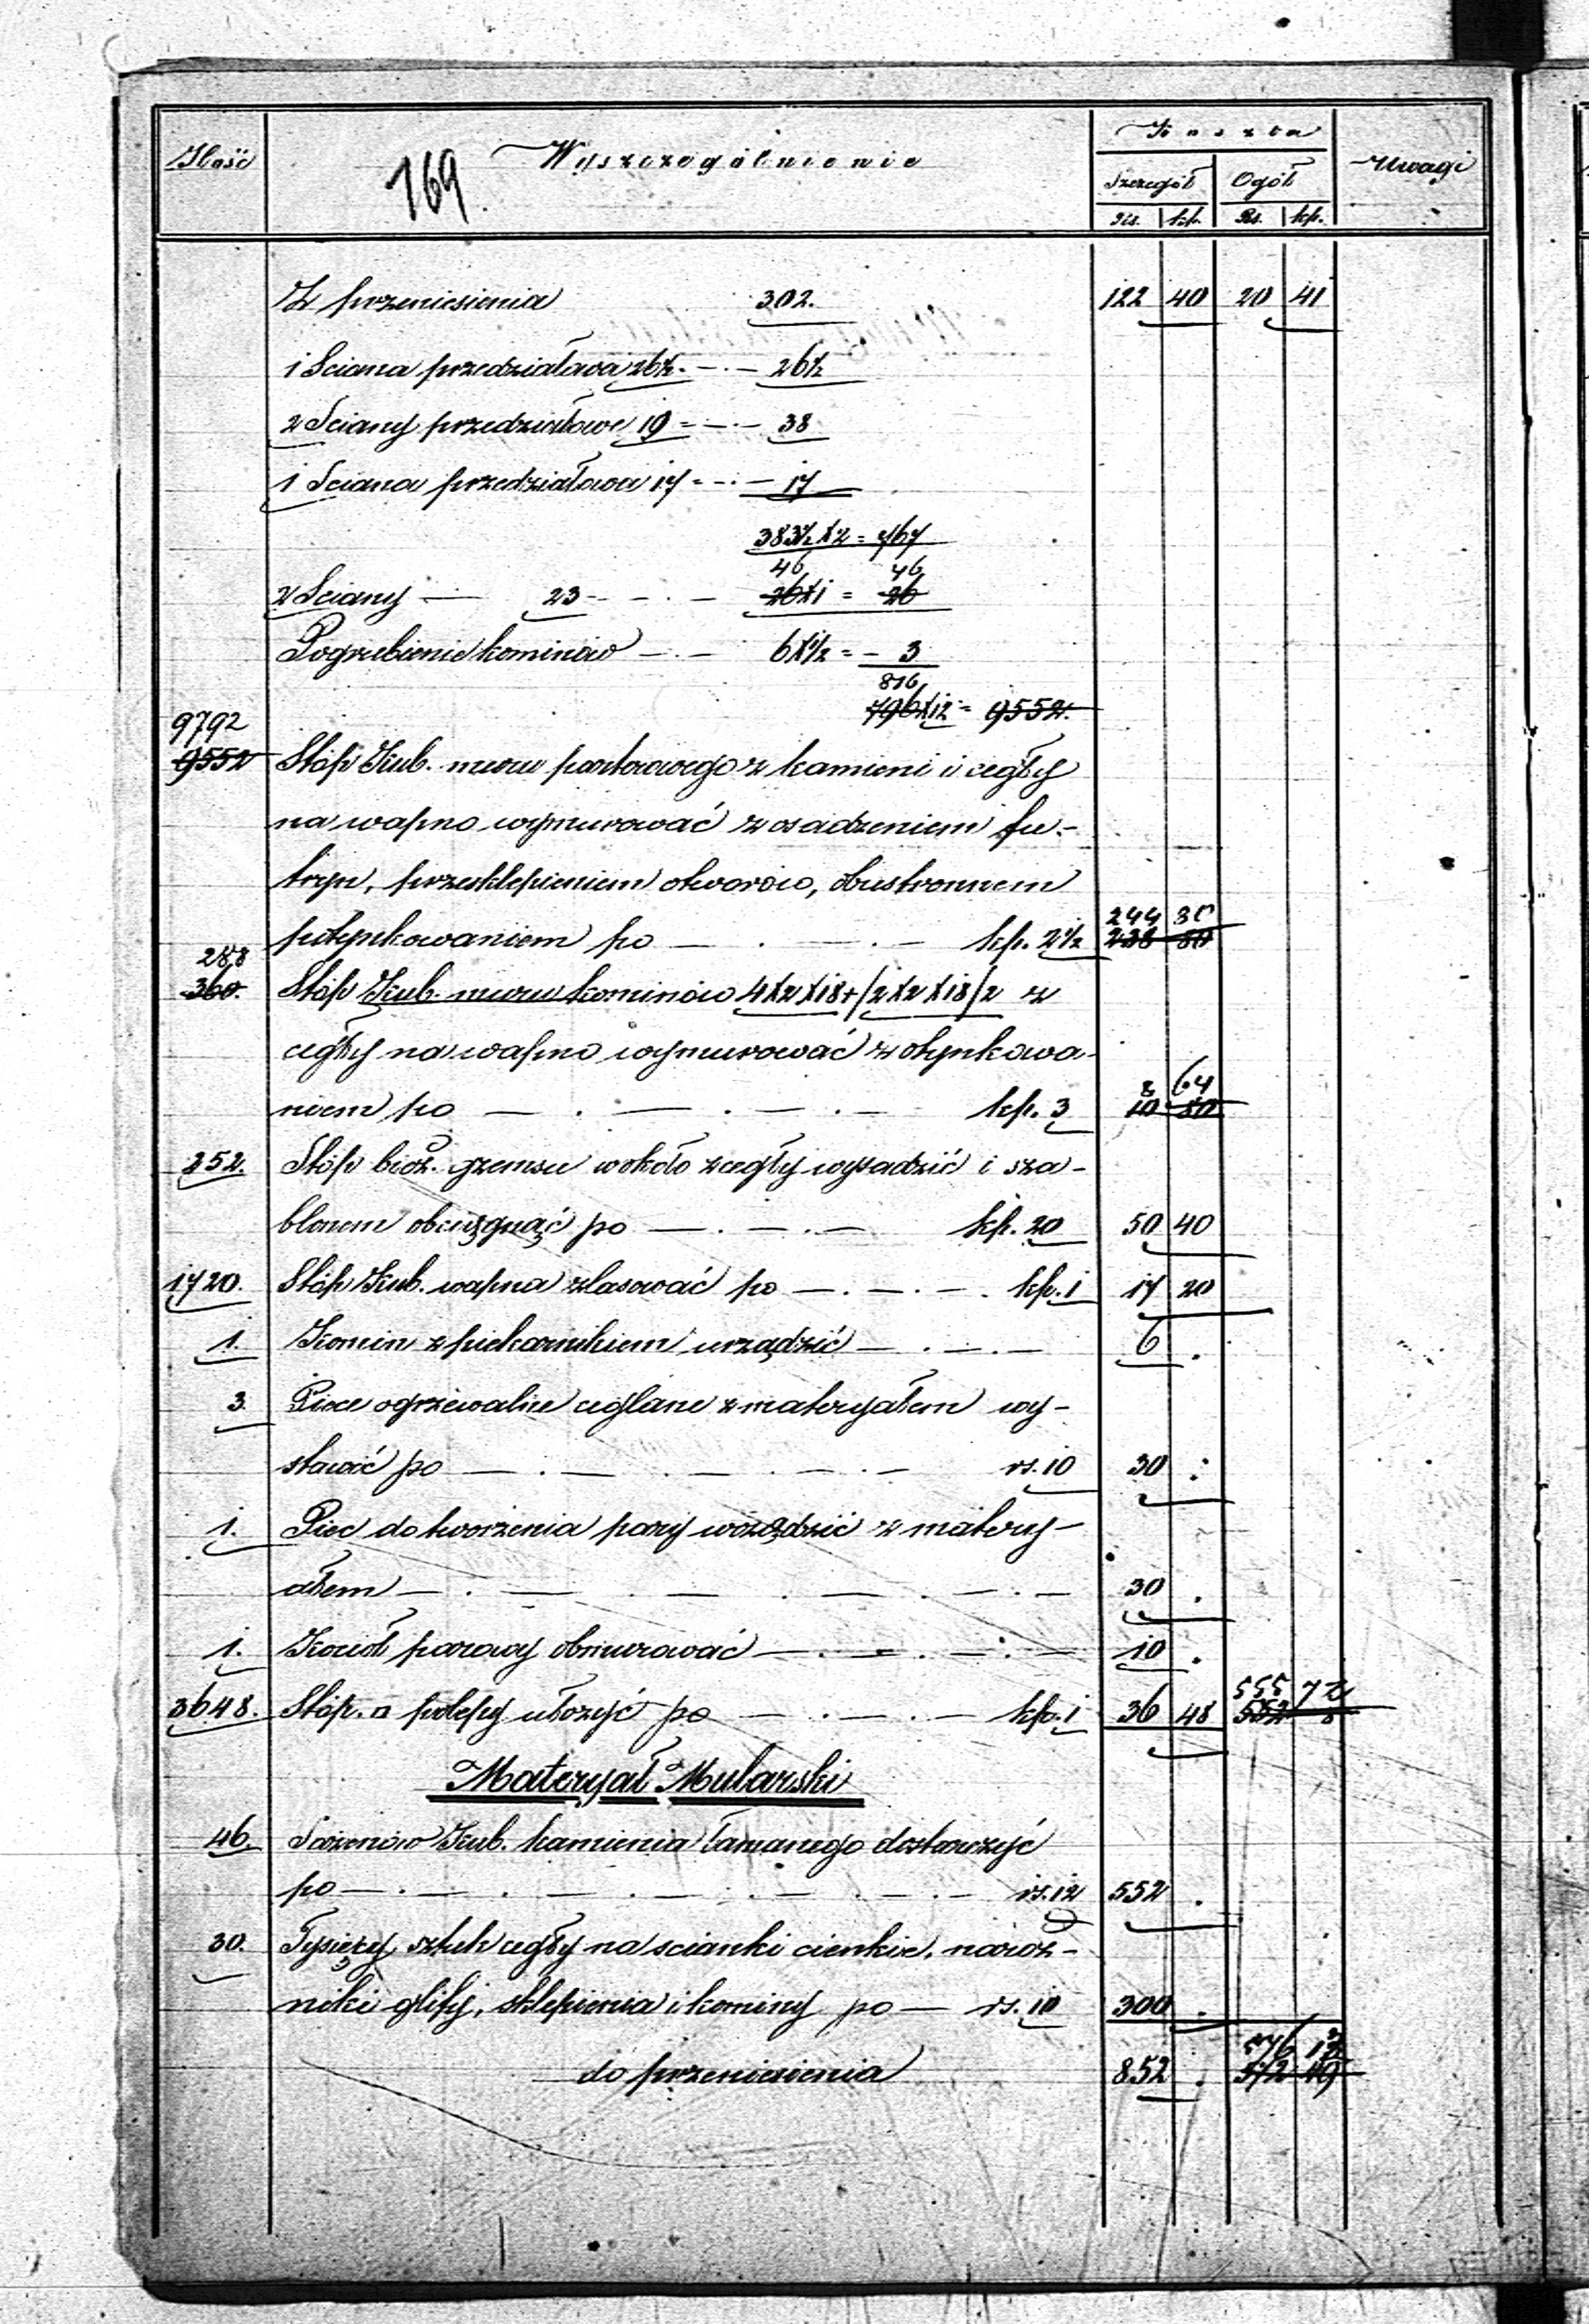 Ilość
169.
Wyszczególnienie
Koszta
Szczegół Ogół
Rs. kp. Rs. kp.
Uwagi
Z przeniesienia 302. 122 40 20 41
1 Sciana przedziałowa 26½ - 26½
2 Sciany przedziałowe 19 = - 38
1 Sciana przedziałowa 17 = - 17
383½ X 2 = 767
46 46
2 Sciany — 23 - - . - 26X1 = 26
Pogrubienie kominów — . — 6X½ = - 3
816
796X12 = 9552.
9792
9552 Stóp Kub. muru parterowego z kamieni i cegły
na wapno wymurować z osadzeniem fu-
tryn, przesklepieniem otworów, obustronnem
244 80
potynkowaniem po — . — . — kp. 2½ 238 80
288
360. Stóp Kub. muru kominów 4X2X18+(2X2X18)2 z
cegły na wapno wymurować z otynkowa-
8 64
niem po — . — . — . — kp. 3 10 80
252. Stóp bież. gzemsu wokoło z cegły wysadzić i sza-
blonem obciągnąć po — . — . — kp. 20 50 40
1720. Stóp Kub. wapna zlasować po — . — . — . kp. 1 17 20
1. Komin z piekarnikiem urządzić — . — . — 6 .
3. Piece ogrzewalne ceglane z materyałem wy-
stawić po — . — . — . — . — rs. 10 30 .
1. Piec do tworzenia pary urządzić z matery-
ałem — . — . — . — . — . — 30 .
1. Kocioł parowy obmurować — . — . — . — 10 .
555 72
3648. Stóp. □ polepy ułożyć po — . — . — kp. 1 36 48 552 8
Materyał Mularski
46. Sążeniów Kub. kamienia łamanego dostarczyć
po — . — . — . — . — . — rs. 12 552 .
30. Tysięcy sztuk cegły na scianki cienkie, naroż-
niki glify, sklepienia i kominy po — rs. 10 300 .
576 13
do przeniesienia 852 . 572 49